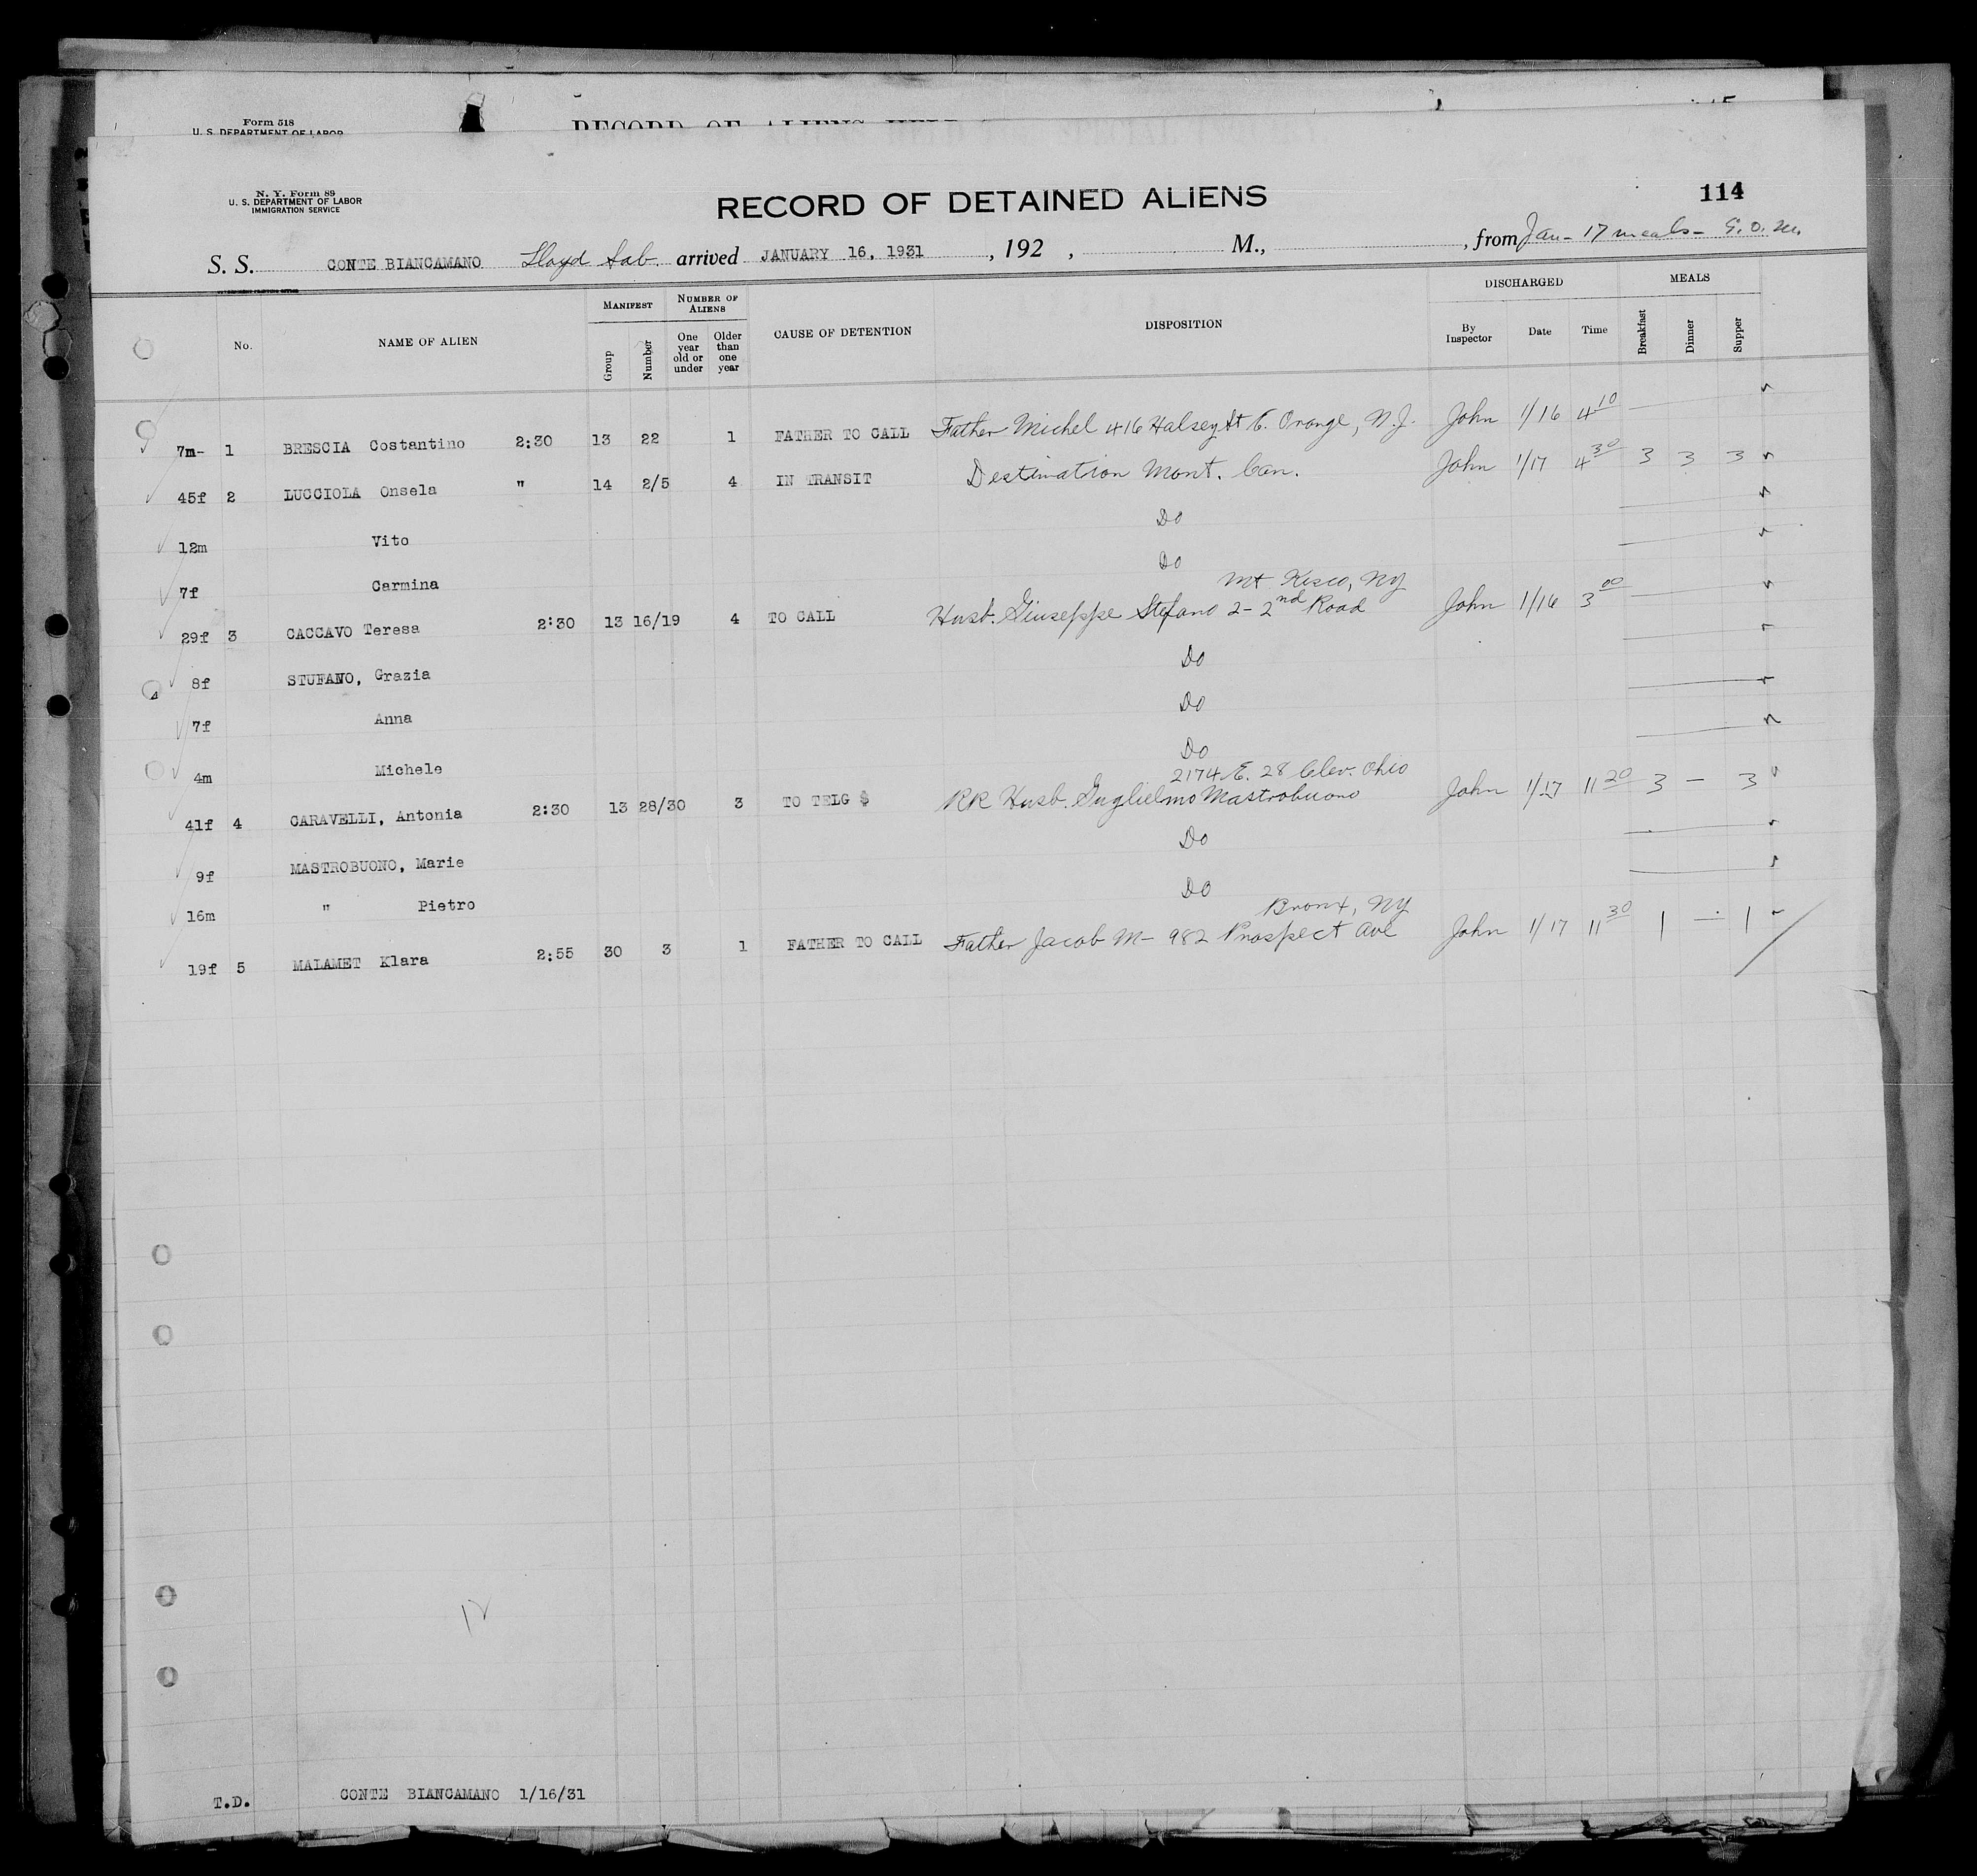 Form 518
U. S. DEPARTMENT OF LABOR
RECORD OF ALIENS HELD
N. Y. Form 89
U. S. DEPARTMENT OF LABOR
IMMIGRATION SERVICE
RECORD OF DETAINED ALIENS
114
S. S. CONTE BIANCAMANO Lloyd Sab. arrived JANUARY 16, 1931 , 192 , M., , from Jan - 17 meals -
No. NAME OF ALIEN MANIFEST Group Number NUMBER OF ALIENS One year old or under Older than one year CAUSE OF DETENTION DISPOSITION DISCHARGED By Inspector Date Time MEALS Breakfast Dinner Supper
7m- 1 BRESCIA Costantino 2:30 13 22 1 FATHER TO CALL Father Michel 416 Halsey St E. Orange, N.J. John 1/16 4 10
45f 2 LUCCIOLA Onsela " 14 2/5 4 IN TRANSIT Destination Mont. Can. John 1/17 4 30 3 3 3
12m Vito Do
7f Carmina Do
Mt Kisco, NY
29f 3 CACCAVO Teresa 2:30 13 16/19 4 TO CALL Husb. Giuseppe Stefano 2 - 2nd Road John 1/16 3 00
8f STUFANO, Grazia Do
7f Anna Do
4m Michele Do
2174 E. 28 Clev. Ohio
41f 4 CARAVELLI, Antonia 2:30 13 28/30 3 TO TELG $ RR Husb. Guglielmo Mastrobuono John 1/17 11 20 3 — 3
9f MASTROBUONO, Marie Do
16m " Pietro Do
Bronx, NY
19f 5 MALAMET Klara 2:55 30 3 1 FATHER TO CALL Father Jacob M - 982 Prospect Ave John 1/17 11 30 1 — 1
12
T.D. CONTE BIANCAMANO 1/16/31